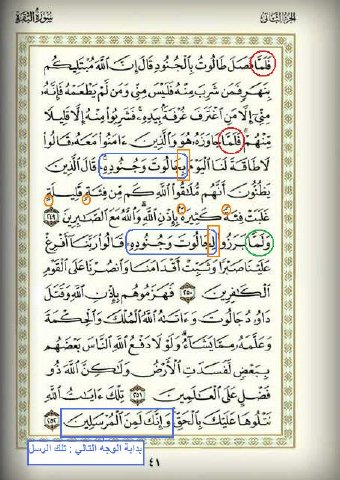 الجزء الثاني
سورة البقرة
فَلَمَّا فَصَلَ طَالُوتُ بِالْجُنُودِ قَالَ إِنَّ اللَّهَ مُبْتَلِيكُم
بِنَهَرٍ فَمَن شَرِبَ مِنْهُ فَلَيْسَ مِنِّي وَمَن لَّمْ يَطْعَمْهُ فَإِنَّهُ
مِنِّي إِلَّا مَنِ اغْتَرَفَ غُرْفَةً بِيَدِهِ فَشَرِبُوا مِنْهُ إِلَّا قَلِيلًا
مِّنْهُمْ فَلَمَّا جَاوَزَهُ هُوَ وَالَّذِينَ ءَامَنُوا مَعَهُ قَالُوا
لَا طَاقَةَ لَنَا الْيَوْمَ بِجَالُوتَ وَجُنُودِهِ قَالَ الَّذِينَ
يَظُنُّونَ أَنَّهُم مُّلَاقُوا اللَّهِ كَم مِّن فِئَةٍ قَلِيلَةٍ
غَلَبَتْ فِئَةً كَثِيرَةً بِإِذْنِ اللَّهِ وَاللَّهُ مَعَ الصَّابِرِينَ ٢٤٩
وَلَمَّا بَرَزُوا لِجَالُوتَ وَجُنُودِهِ قَالُوا رَبَّنَا أَفْرِغْ
عَلَيْنَا صَبْرًا وَثَبِّتْ أَقْدَامَنَا وَانصُرْنَا عَلَى الْقَوْمِ
الْكَافِرِينَ ٢٥٠ فَهَزَمُوهُم بِإِذْنِ اللَّهِ وَقَتَلَ
دَاوُدُ جَالُوتَ وَءَاتَاهُ اللَّهُ الْمُلْكَ وَالْحِكْمَةَ
وَعَلَّمَهُ مِمَّا يَشَاءُ وَلَوْلَا دَفْعُ اللَّهِ النَّاسَ بَعْضَهُم
بِبَعْضٍ لَّفَسَدَتِ الْأَرْضُ وَلَٰكِنَّ اللَّهَ ذُو
فَضْلٍ عَلَى الْعَالَمِينَ ٢٥١ تِلْكَ ءَايَاتُ اللَّهِ
نَتْلُوهَا عَلَيْكَ بِالْحَقِّ وَإِنَّكَ لَمِنَ الْمُرْسَلِينَ ٢٥٢
بداية الوجه التالي : تلك الرسل
٤١